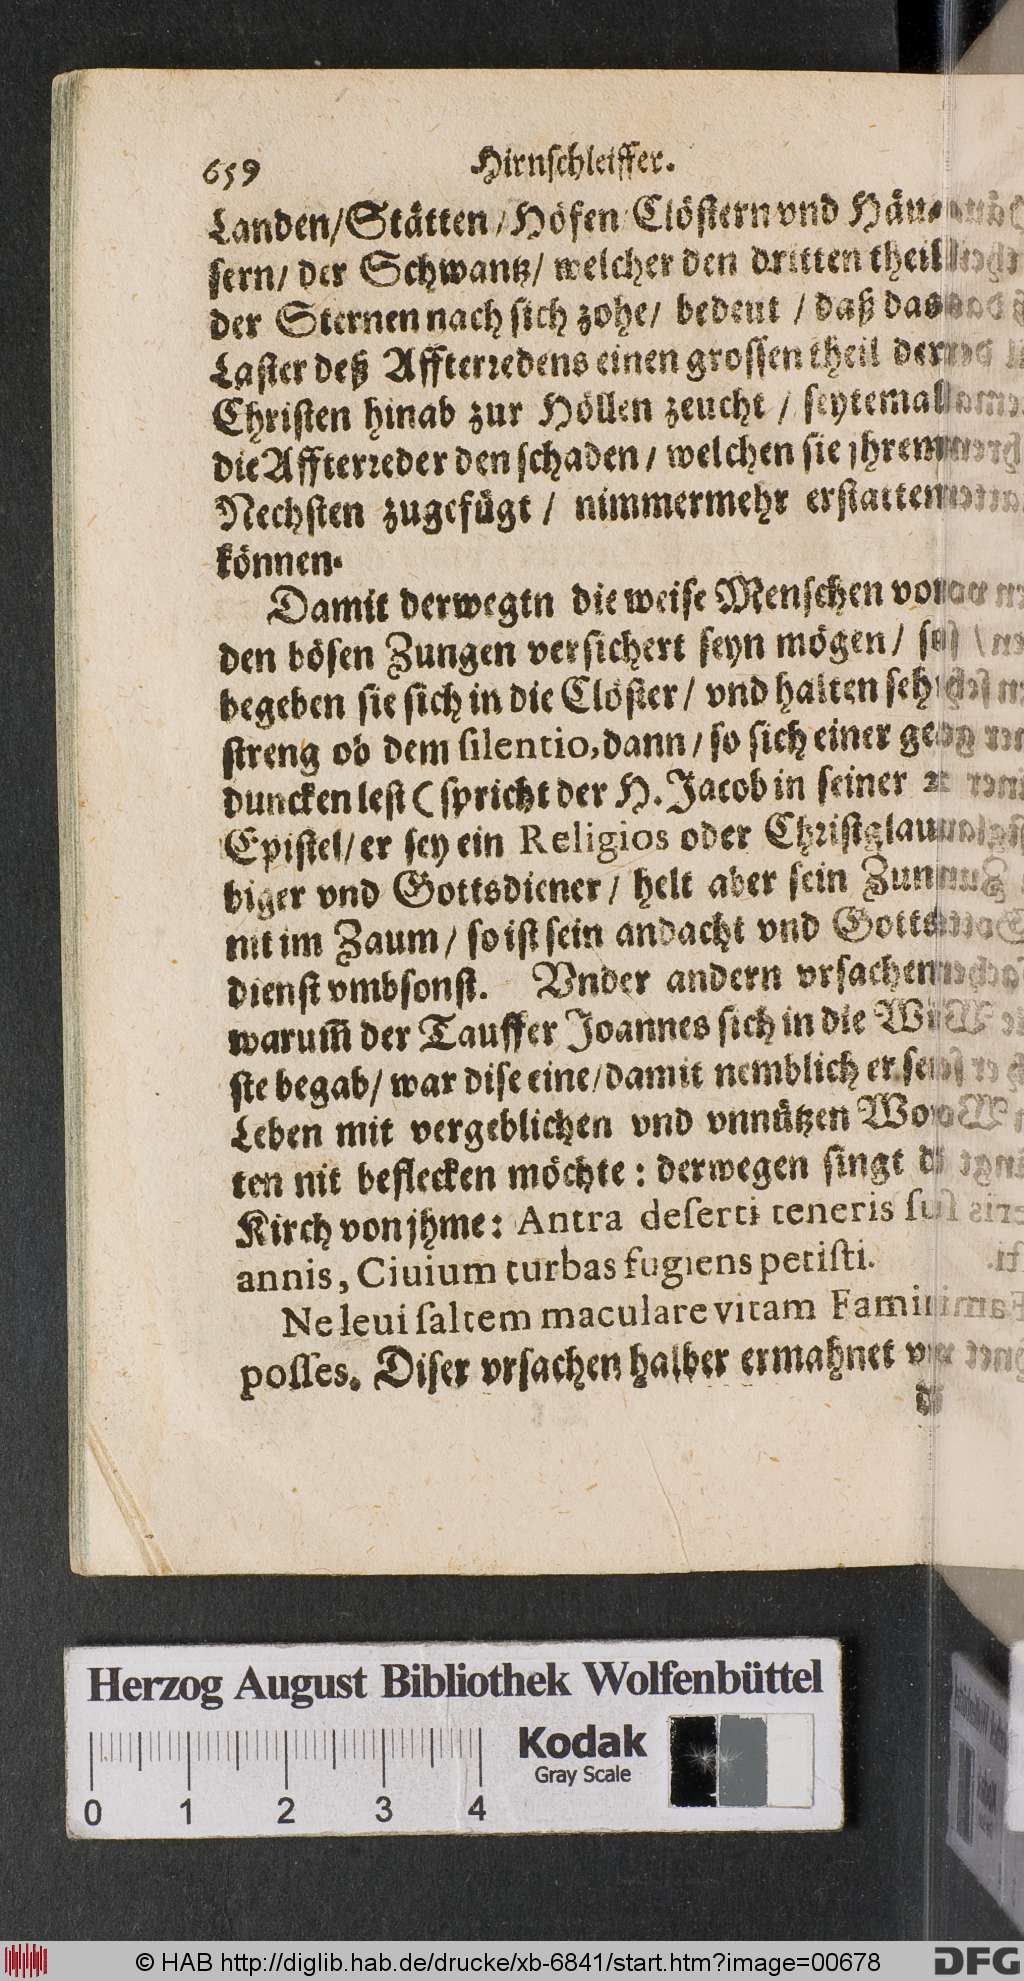 659 Hirnschleiffer.
Landen/Stätten/Höfen Clöstern vnd Häu-
sern/ der Schwantz/ welcher den dritten theil
der Sternen nach sich zohe/ bedeut / daß das
Laster deß Affterredens einen grossen theil der
Christen hinab zur Höllen zeucht / seytemal
die Affterreder den schaden/ welchen sie jhrem
Nechsten zugefügt / nimmermehr erstatten
können.
Damit derwegtn die weise Menschen vor
den bösen Zungen versichert seyn mögen/ so
begeben sie sich in die Clöster/ vnd halten sehr
streng ob dem silentio, dann/ so sich einer
duncken lest (spricht der H. Jacob in seiner
Epistel/ er sey ein Religios oder Christglau-
biger vnd Gottsdiener/ helt aber sein Zung
nit im Zaum/ so ist sein andacht vnd Gotts-
dienst vmbsonst. Vnder andern vrsachen
warum̃ der Tauffer Joannes sich in die Wü-
ste begab/ war dise eine/damit nemblich er sein
Leben mit vergeblichen vnd vnnützen Wor-
ten nit beflecken möchte: derwegen singt
Kirch von jhme: Antra deserti teneris sub
annis, Ciuium turbas fugiens petisti.
Ne leui saltem maculare vitam Famine
posses. Diser vrsachen halber ermahnet
Herzog August Bibliothek Wolfenbüttel
Kodak
Gray Scale
0 1 2 3 4
© HAB http://diglib.hab.de/drucke/xb-6841/start.htm?image=00678
DFG